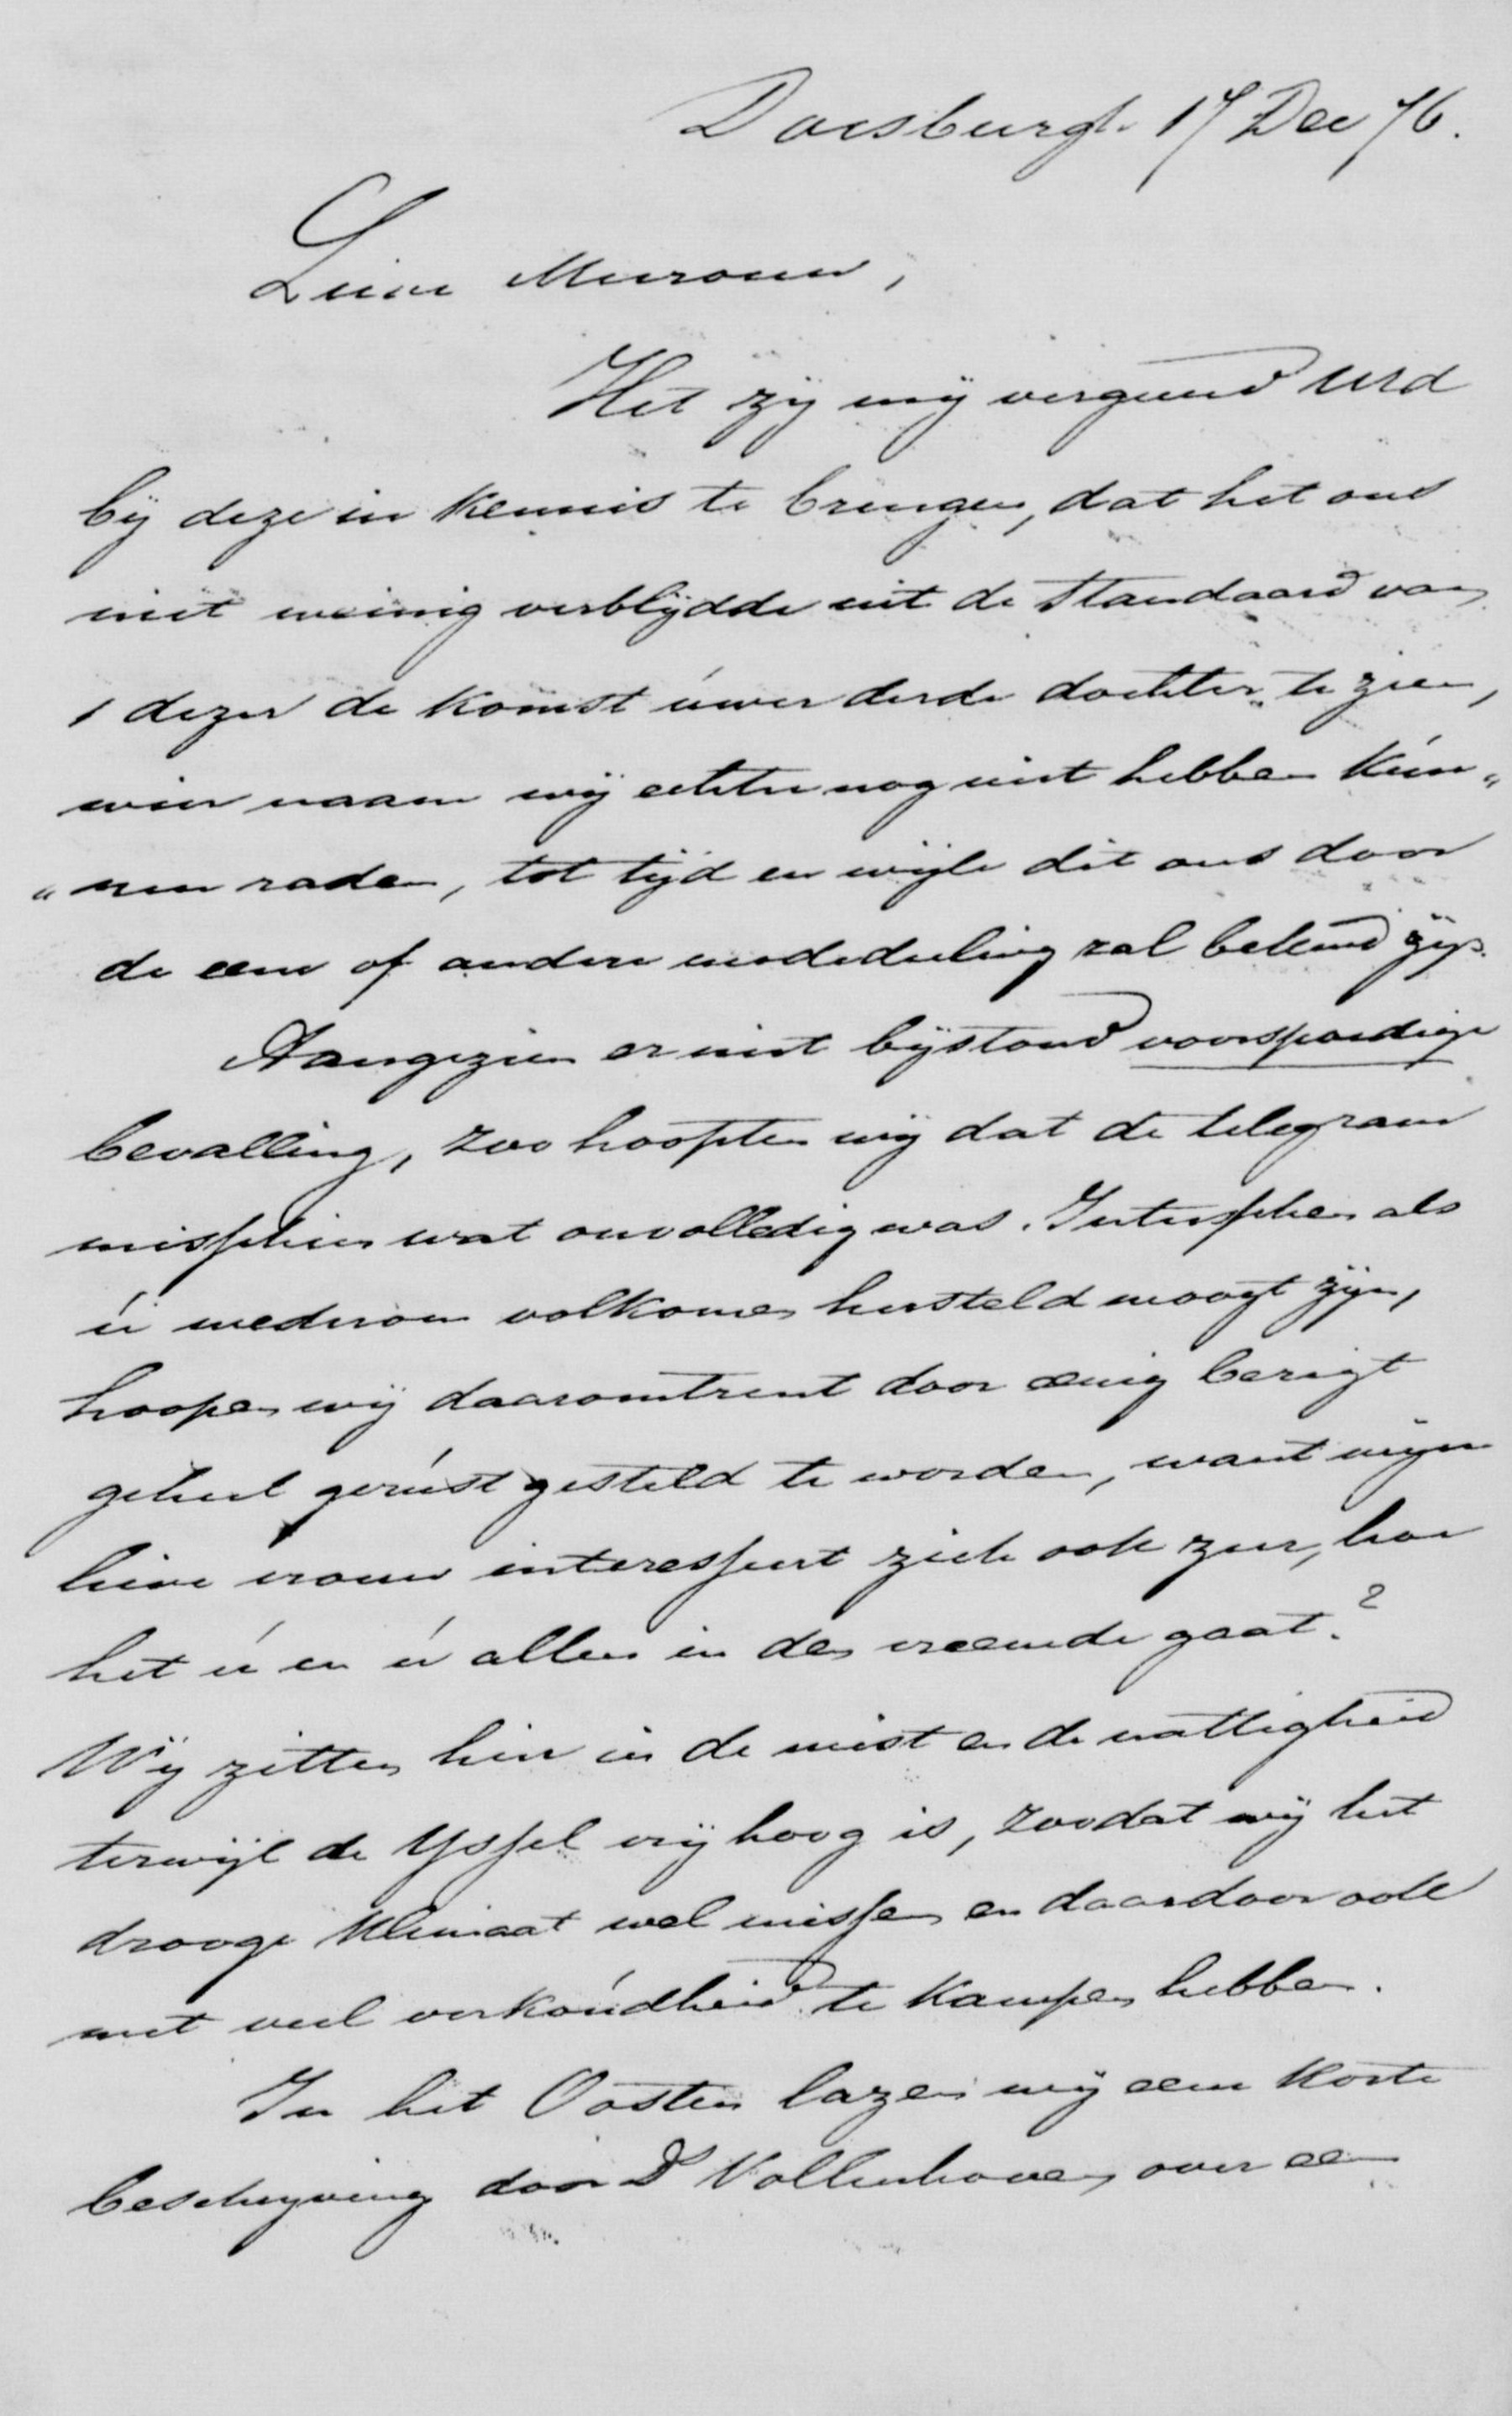 Doesburgh 17 Dec 76.
Lieve Mevrouw,
Het zij mij vergund UEd
bij deze in kennis te brengen, dat het ons
niet weinig verblijdde uit de Standaard van
1 dezer de komst úwer derde dochter te zien,
wier naam wij echter nog niet hebben kún„
„nen raden, tot tijd en wijle dit ons door
de eene of andere mededeeling zal bekend zijn.
Aangezien er niet bijstond voorspoedige
bevalling, zoo hoopten wij dat de telegram
misschien wat onvolledig was. Intusschen als
ú mevrouw volkomen hersteld moogt zijn,
hoopen wij daaromtrent door eenig berigt
geheel gerúst gesteld te worden, want mijne
lieve vrouw interesseert zich ook zeer, hoe
het ú en ú allen in den vreemde gaat.?
Wij zitten hier in de mist en de nattigheid
terwijl de IJssel vrij hoog is, zoodat wij het
drooge klimaat wel missen en daardoor ook
met veel verkoúdheid te kampen hebben.
In het Oosten lazen wij eene korte
beschrijving door Ds Vollenhoven over een